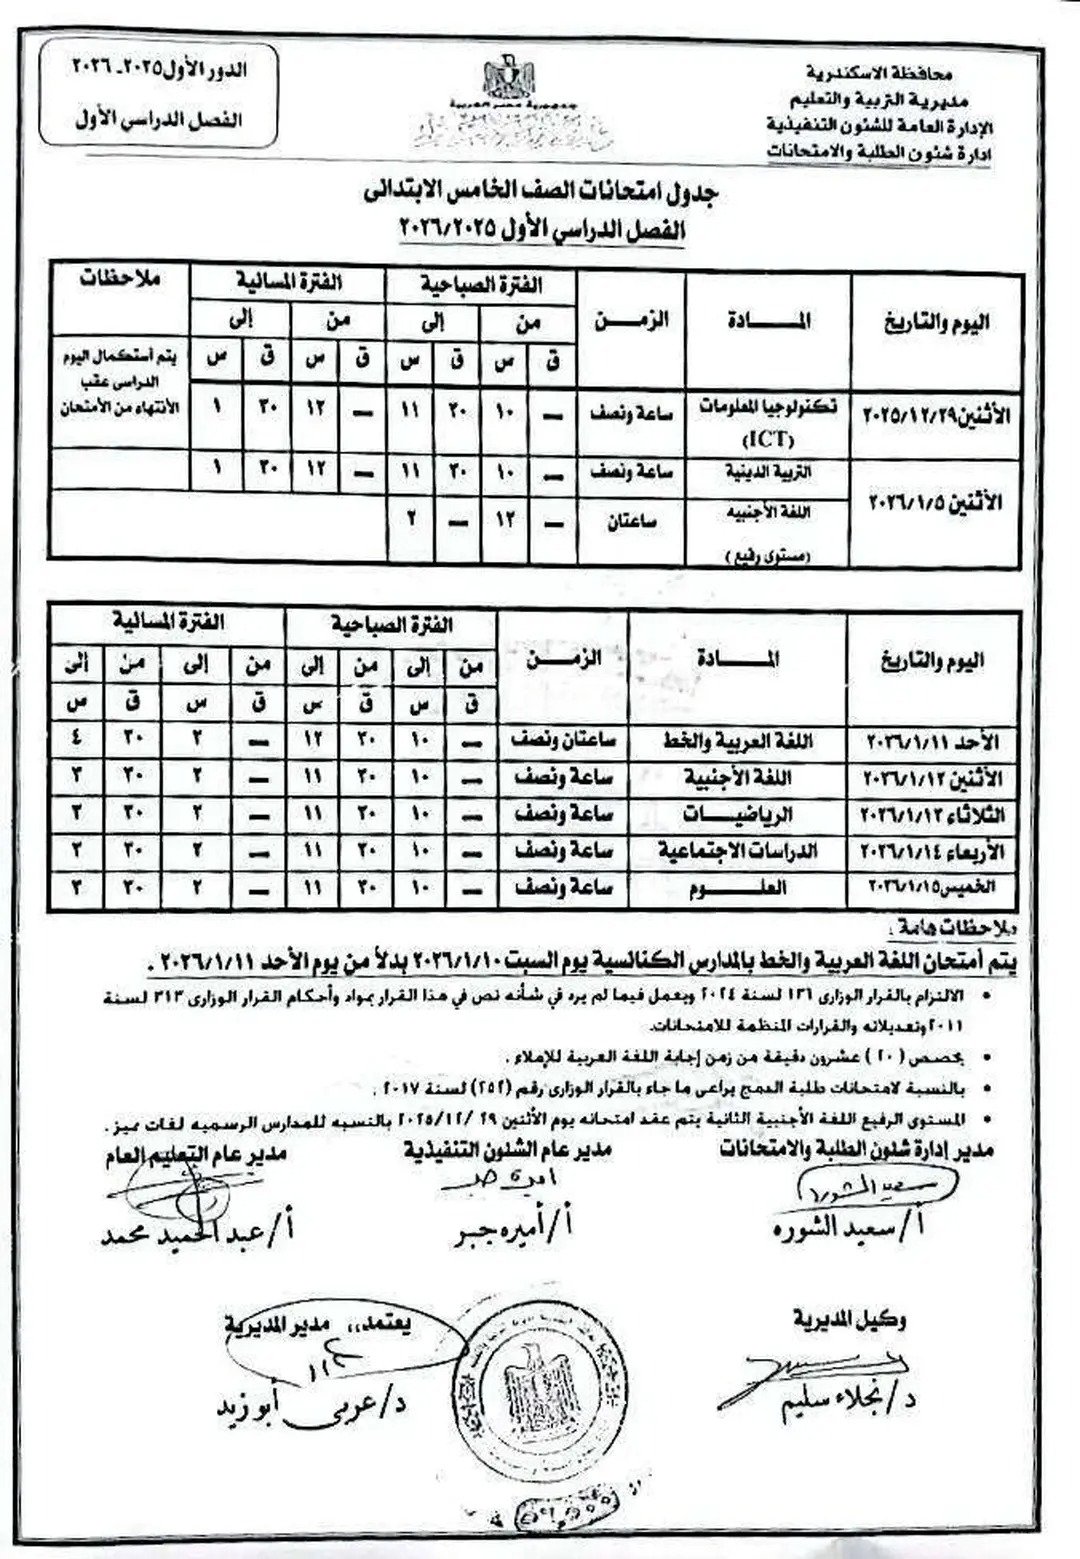 محافظة الاسكندرية
مديرية التربية والتعليم
الإدارة العامة للشئون التنفيذية
ادارة شئون الطلبة والامتحانات
جمهورية مصر العربية
الدور الأول ٢٠٢٥ـ ٢٠٢٦
الفصل الدراسي الأول
جدول امتحانات الصف الخامس الابتدائى
الفصل الدراسي الأول ٢٠٢٦/٢٠٢٥
اليوم والتاريخ المــــادة الزمــن الفترة الصباحية الفترة المسائية ملاحظات
من إلى من إلى
ق س ق س ق س ق س
الأثنين ٢٠٢٥/١٢/٢٩ تكنولوجيا المعلومات (ICT) ساعة ونصف — ١٠ ٣٠ ١١ — ١٢ ٣٠ ١ يتم أستكمال اليوم الدراسى عقب الأنتهاء من الأمتحان
الأثنين ٢٠٢٦/١/٥ التربية الدينية ساعة ونصف — ١٠ ٣٠ ١١ — ١٢ ٣٠ ١
اللغة الأجنبيه (مستوى رفيع) ساعتان — ١٢ — ٢
اليوم والتاريخ المــــادة الزمــن الفترة الصباحية الفترة المسائية
من إلى من إلى من إلى من إلى
ق س ق س ق س ق س
الأحد ٢٠٢٦/١/١١ اللغة العربية والخط ساعتان ونصف — ١٠ ٣٠ ١٢ — ٢ ٣٠ ٤
الأثنين ٢٠٢٦/١/١٢ اللغة الأجنبية ساعة ونصف — ١٠ ٣٠ ١١ — ٢ ٣٠ ٣
الثلاثاء ٢٠٢٦/١/١٣ الرياضيـــات ساعة ونصف — ١٠ ٣٠ ١١ — ٢ ٣٠ ٣
الأربعاء ٢٠٢٦/١/١٤ الدراسات الاجتماعية ساعة ونصف — ١٠ ٣٠ ١١ — ٢ ٣٠ ٣
الخميس ٢٠٢٦/١/١٥ العلـــوم ساعة ونصف — ١٠ ٣٠ ١١ — ٢ ٣٠ ٣
ملاحظات هامة :
يتم أمتحان اللغة العربية والخط بالمدارس الكنائسية يوم السبت ٢٠٢٦/١/١٠ بدلاً من يوم الأحد ٢٠٢٦/١/١١ .
• الالتزام بالقرار الوزارى ١٣٦ لسنة ٢٠٢٤ ويعمل فيما لم يرد في شأنه نص في هذا القرار بمواد وأحكام القرار الوزارى ٣١٣ لسنة
٢٠١١ وتعديلاته والقرارات المنظمة للامتحانات.
• يخصص (٢٠) عشرون دقيقة من زمن إجابة اللغة العربية للإملاء .
• بالنسبة لامتحانات طلبة الدمج يراعى ما جاء بالقرار الوزارى رقم (٢٥٢) لسنة ٢٠١٧ .
• المستوى الرفيع اللغة الأجنبية الثانية يتم عقد امتحانه يوم الأثنين ٢٩ /٢٠٢٥/١٢ بالنسبه للمدارس الرسميه لغات متميز .
مدير إدارة شئون الطلبة والامتحانات مدير عام الشئون التنفيذية مدير عام التعليم العام
سعيد الشوره اميره جبر
أ/ سعيد الشوره أ/ أميره جبر أ/ عبد الحميد محمد
وكيل المديرية يعتمد،، مدير المديرية
د/ نجلاء سليم د/ عربى أبو زيد